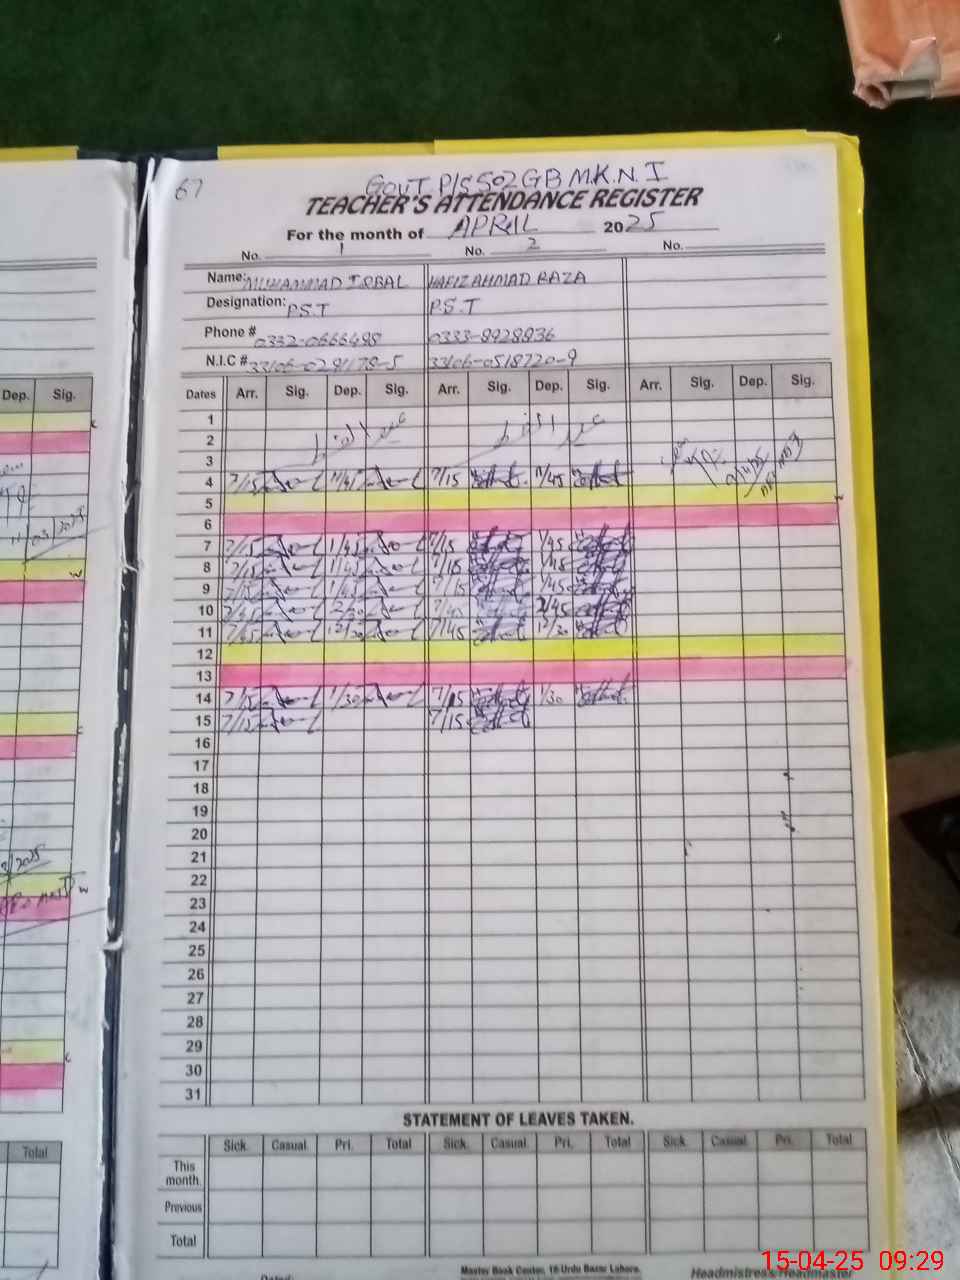 67
GOVT P/S 502 GB M.K.N.I
TEACHER'S ATTENDANCE REGISTER
For the month of APRIL 2025
No. 1 No. 2 No.
Name: MUHAMMAD IQBAL HAFIZ AHMAD RAZA
Designation: P.S.T P.S.T
Phone # 0332-0666498 0333-8928936
N.I.C # 33106-0291178-5 33106-0518720-9
Dep. Sig.
Dates Arr. Sig. Dep. Sig. Arr. Sig. Dep. Sig. Arr. Sig. Dep. Sig.
1
2 عید الفطر عید الفطر
3
4 7/15 11/45 7/15 11/45
5
6
7 7/15 1/45 7/15 1/45
8 7/15 1/45 7/15 1/45
9 7/15 1/45 7/15 1/45
10 7/45 7/45 2/45
11 7/45 12/30 7/45 12/30
12
13
14 7/15 1/30 7/15 1/30
15 7/15 7/15
16
17
18
19
20
21
22
23
24
25
26
27
28
29
30
31
STATEMENT OF LEAVES TAKEN.
Total
Sick. Casual. Pri. Total Sick. Casual. Pri. Total Sick. Casual. Pri. Total
This month.
Previous
Total
Master Book Center, 18 Urdu Bazar Lahore.
Headmistress/Headmaster
15-04-25 09:29